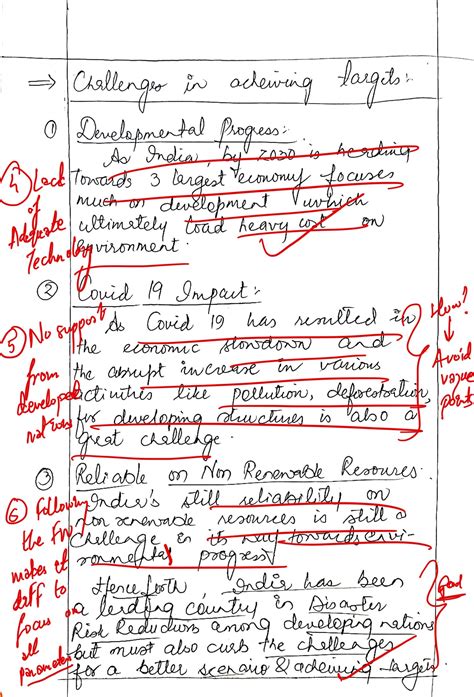 ⇒ Challenges in acheiving targets:-
① Developmental Progress:-
As India, by 2030 is heading
towards 3 largest economy focuses
much on development which
ultimately load heavy cost on
environment.
④ Lack
of
Adequate
Technology
② Covid 19 Impact:-
As Covid 19 has resulted in
the economic slowdown and
the abrupt increase in various
activities like pollution, deforestation,
for developing structures is also a
great challenge.
How?
Avoid
vague
points
⑤ No support
from
developed
③ Reliable on Non Renewable Resources.
India's still reliability on
non renewable resources is still a
challenge in its way towards envi-
ronmental progress
⑥ Following
the
makes it
diff to
focus on
all
parameters
Henceforth, India has been
a leading country in Disaster
Risk Reductions among developing nations
but must also curb the challenges
for a better scenario & acheiving targets
Good